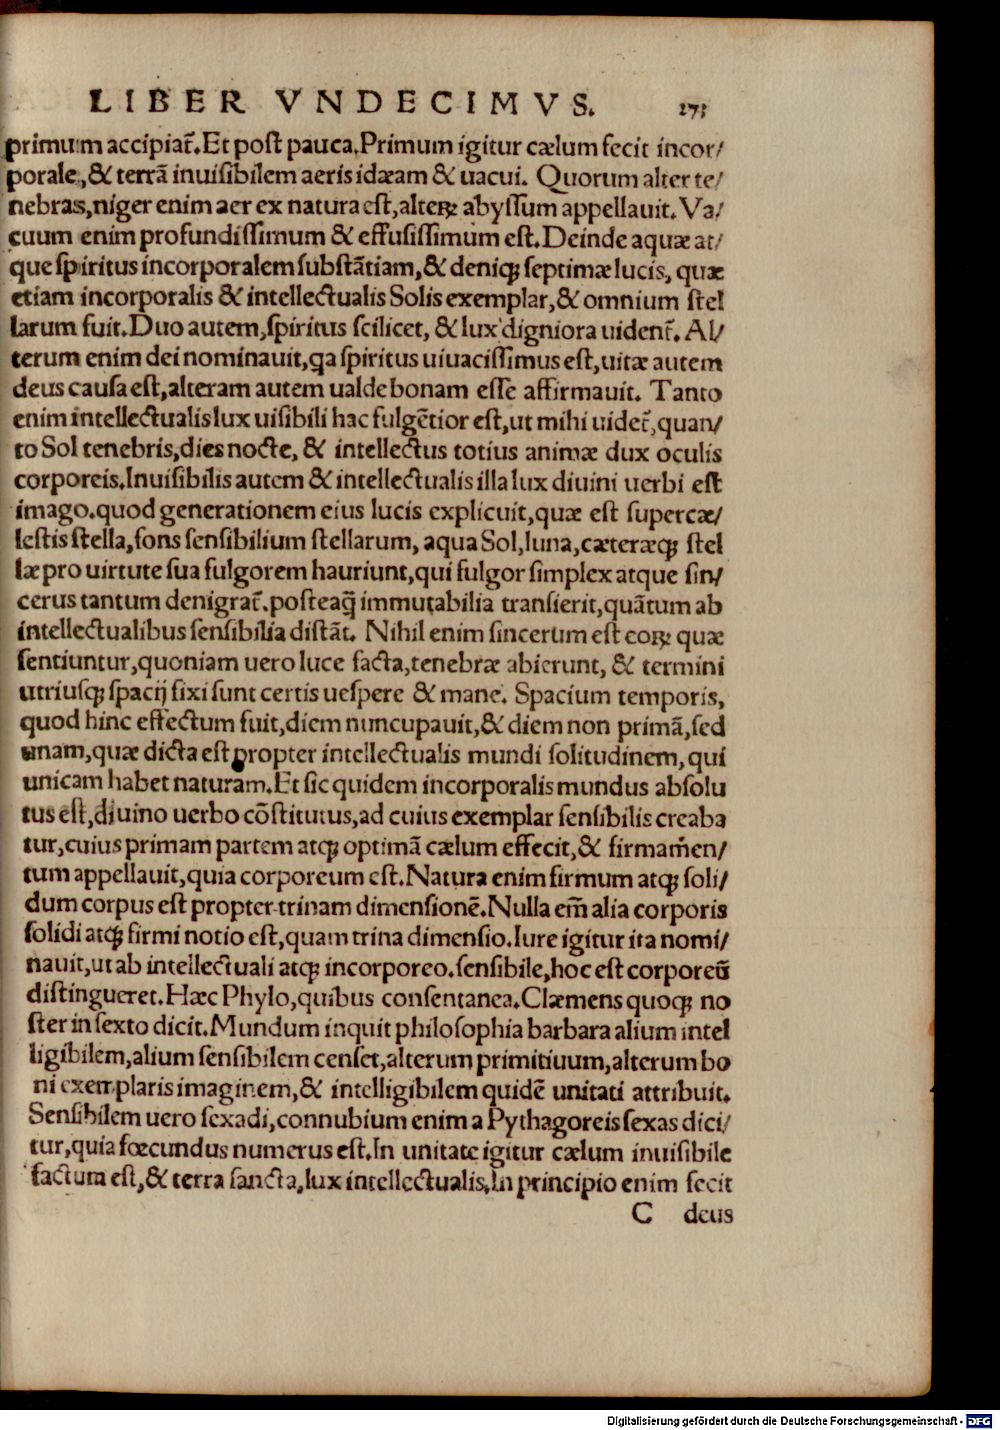 LIBER VNDECIMVS. 173
primum accipiat̃. Et post pauca. Primum igitur cælum fecit incor/
porale, & terrã inuisibilem aeris idæam & uacui. Quorum alter te/
nebras, niger enim aer ex natura est, alterꝝ abyssum appellauit. Va/
cuum enim profundissimum & effusissimum est. Deinde aquæ at/
que spiritus incorporalem substãtiam, & deniqꝫ septimæ lucis, quæ
etiam incorporalis & intellectualis Solis exemplar, & omnium stel
larum fuit. Duo autem, spiritus scilicet, & lux digniora uident̃. Al/
terum enim dei nominauit, ꝗa spiritus uiuacissimus est, uitæ autem
deus causa est, alteram autem ualde bonam esse affirmauit. Tanto
enim intellectualis lux uisibili hac fulgẽtior est, ut mihi uidet̃, quan/
to Sol tenebris, dies nocte, & intellectus totius animæ dux oculis
corporeis. Inuisibilis autem & intellectualis illa lux diuini uerbi est
imago. quod generationem eius lucis explicuit, quæ est supercæ/
lestis stella, fons sensibilium stellarum, aqua Sol, luna, cæteræqꝫ stel
læ pro uirtute sua fulgorem hauriunt, qui fulgor simplex atque sin/
cerus tantum denigrat̃. posteaq̃ immutabilia transierit, quãtum ab
intellectualibus sensibilia distãt. Nihil enim sincerum est eoꝝ quæ
sentiuntur, quoniam uero luce facta, tenebræ abierunt, & termini
utriusqꝫ spacij fixi sunt certis uespere & mane. Spacium temporis,
quod hinc effectum fuit, diem nuncupauit, & diem non primã, sed
unam, quæ dicta est propter intellectualis mundi solitudinem, qui
unicam habet naturam. Et sic quidem incorporalis mundus absolu
tus est, diuino uerbo cõstitutus, ad cuius exemplar sensibilis creaba
tur, cuius primam partem atqꝫ optimã cælum effecit, & firmam̃en/
tum appellauit, quia corporeum est. Natura enim firmum atqꝫ soli/
dum corpus est propter trinam dimensionẽ. Nulla em̃ alia corporis
solidi atqꝫ firmi notio est, quam trina dimensio. Iure igitur ita nomi/
nauit, ut ab intellectuali atqꝫ incorporeo. sensibile, hoc est corporeũ
distingueret. Hæc Phylo, quibus consentanea. Clæmens quoqꝫ no
ster in sexto dicit. Mundum inquit philosophia barbara alium intel
ligibilem, alium sensibilem censet, alterum primitiuum, alterum bo
ni exemplaris imaginem, & intelligibilem quidẽ unitati attribuit.
Sensibilem uero sexadi, connubium enim a Pythagoreis sexas dici/
tur, quia fœcundus numerus est. In unitate igitur cælum inuisibile
factum est, & terra sancta, lux intellectualis, In principio enim fecit
C deus
Digitalisierung gefördert durch die Deutsche Forschungsgemeinschaft - DFG